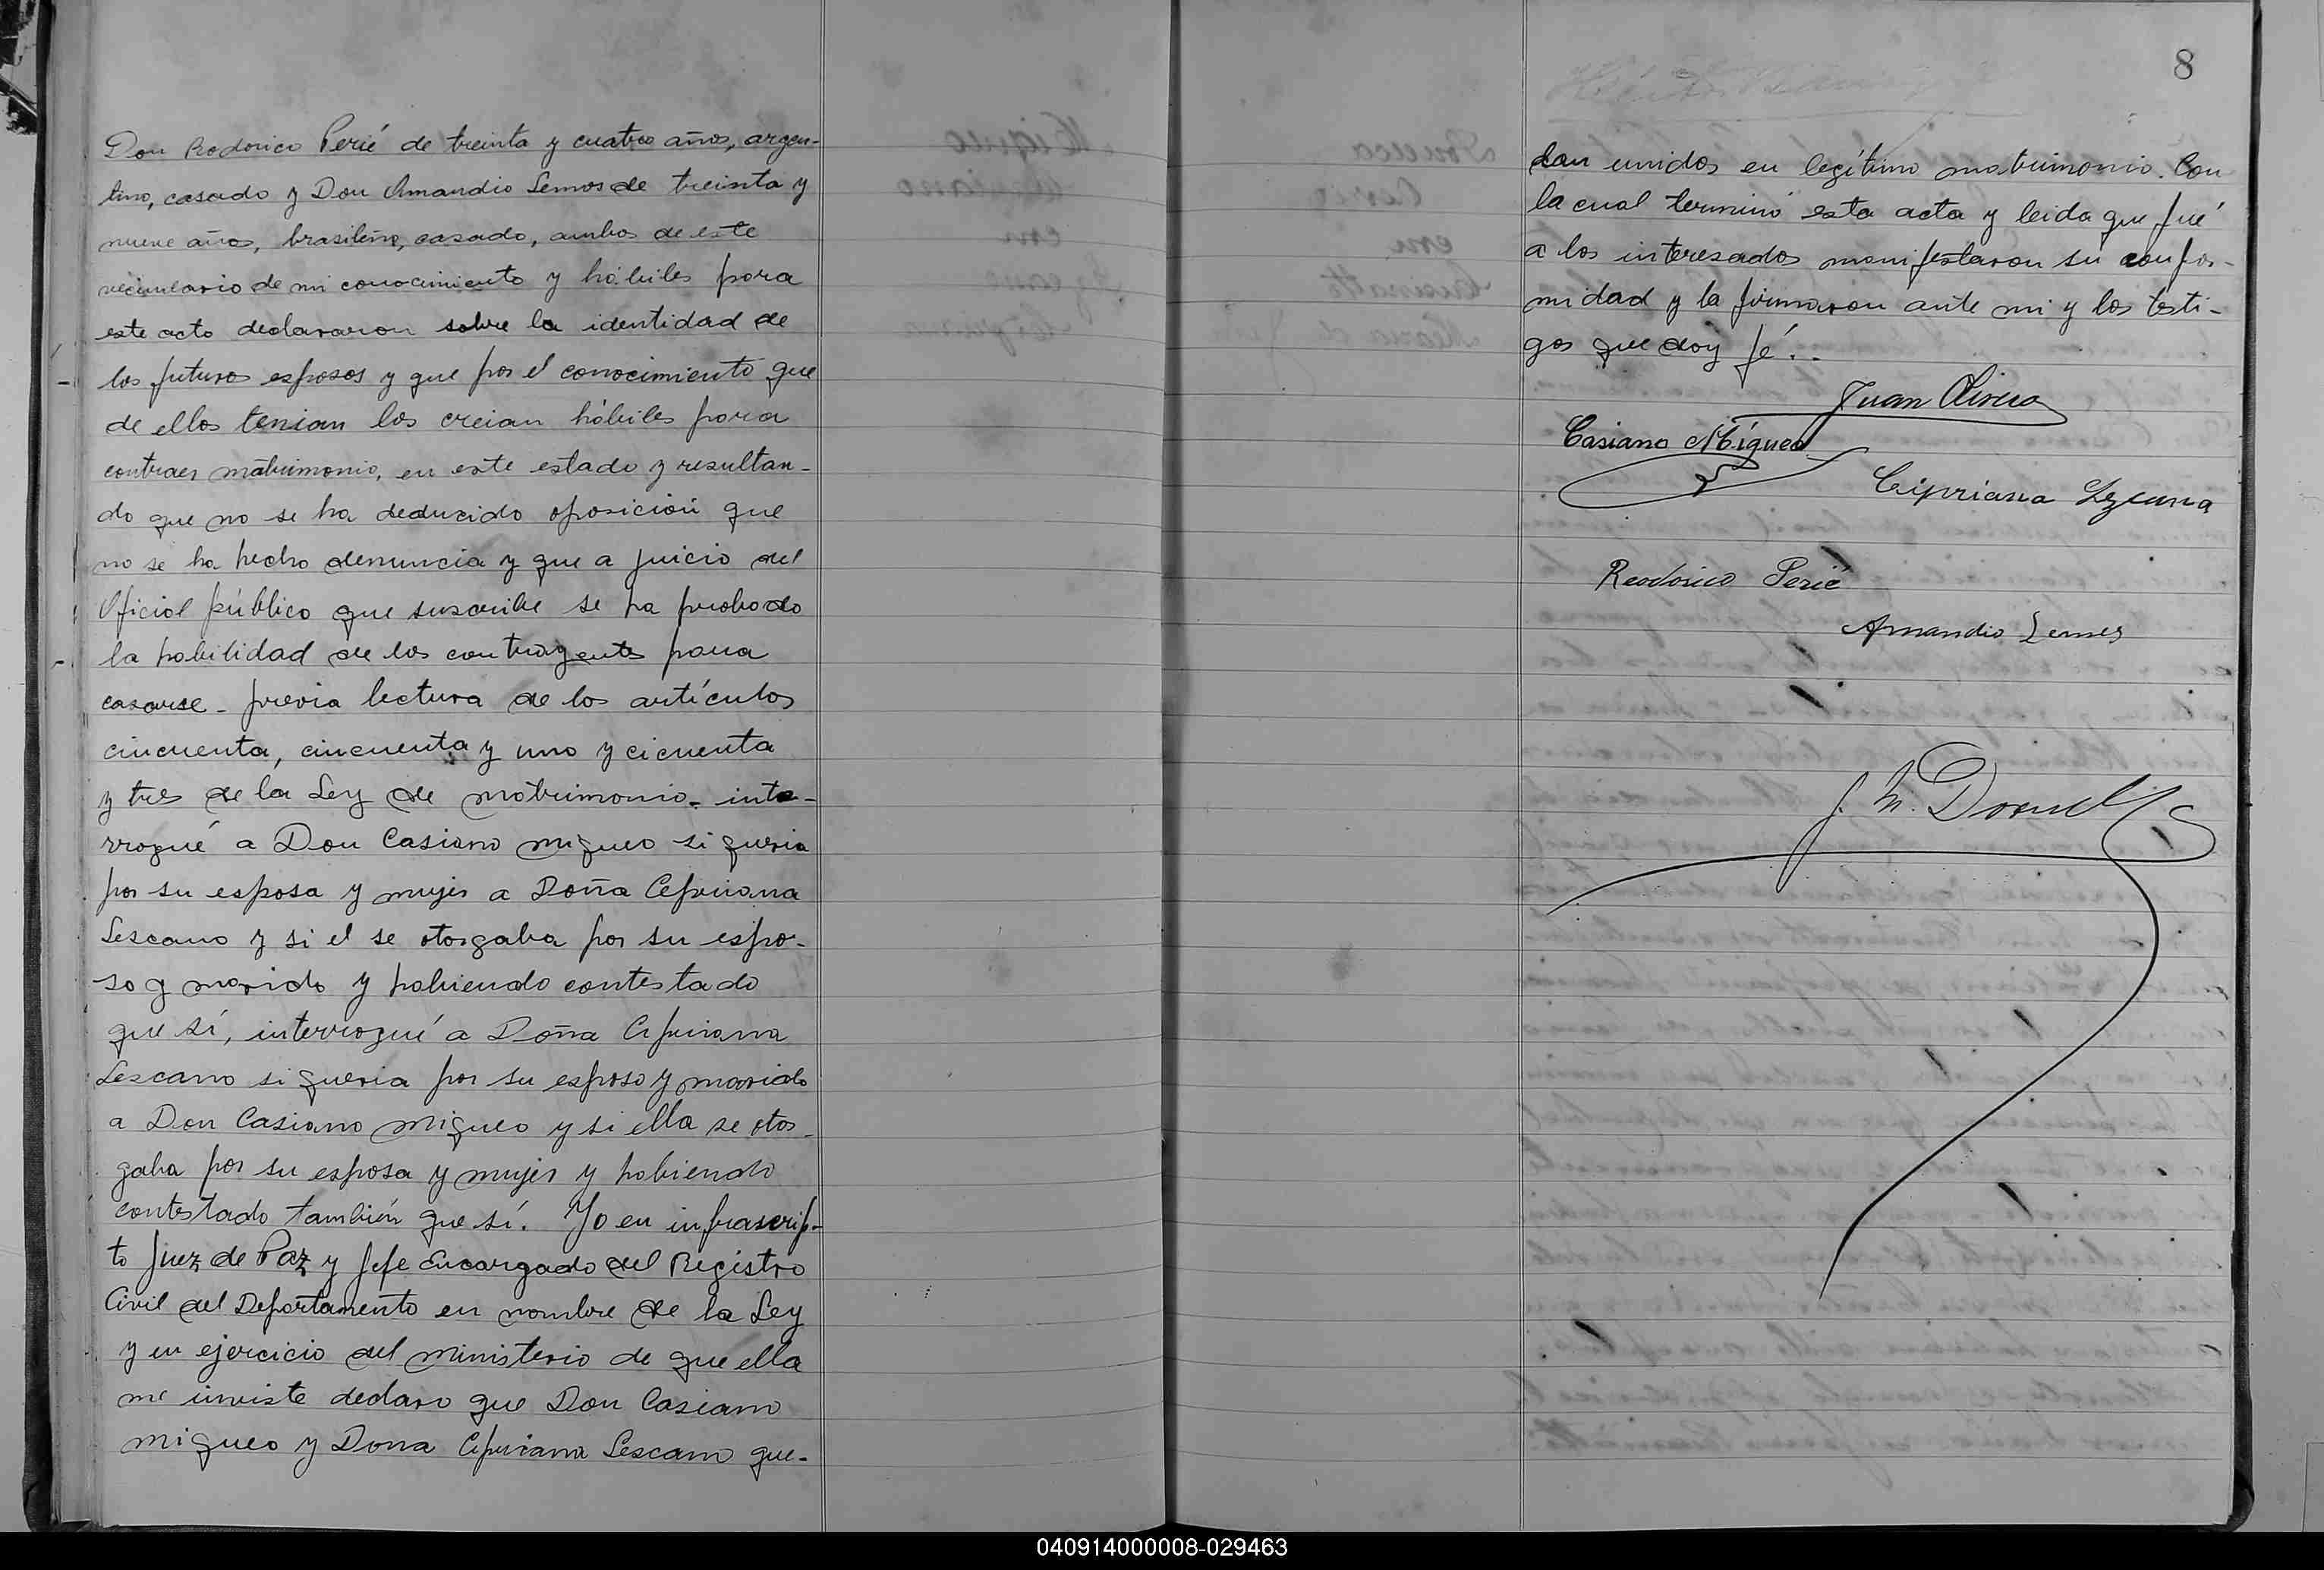 Don Rodorico Perié de treinta y cuatro años, argen-
tino, casado y Don Amandio Lemos de treinta y
nueve años, brasileño, casado, ambos de este
vecindario de mi conocimiento y hábiles para
este acto declararon sobre la identidad de
los futuros esposos y que por el conocimiento que
de ellos tenian los creian hábiles para
contraer matrimonio, en este estado y resultan-
do que no se ha deducido oposición que
no se ha hecho denuncia y que a juicio del
Oficial público que suscribe se ha probado
la habilidad de los contrayentes para
casarse - previa lectura de los artículos
cincuenta, cincuenta y uno y cicuenta
y tres de la Ley de matrimonio - inte-
rrogué a Don Casiano Migueo si queria
por su esposa y mujer a Doña Cipriana
Lescano y si el se otorgaba por su espo-
so y marido y habiendo contestado
que sí, interrogué a Doña Cipriana
Lescano si queria por su esposo y marido
a Don Casiano Migueo y si ella se otor-
gaba por su esposa y mujer y habiendo
contestado también que sí. Yo en infrascrip-
to Juez de Paz y Jefe Encargado del Registro
Civil del Departamento en nombre de la Ley
y en ejercicio del Ministerio de que ella
me inviste declaro que Don Casiano
Migueo y Dona Cipriana Lescano que-
8
dan unidos en legítimo matrimonio. Con
la cual terminó esta acta y leida que fué
a los interesados manifestaron su confor-
midad y la firmaron ante mi y los testi-
gos que doy fé..
Juan Olivera
Casiano Migueo
Cipriana Lezcana
Reodorico Perié
Amandio Lemes
040914000008-029463